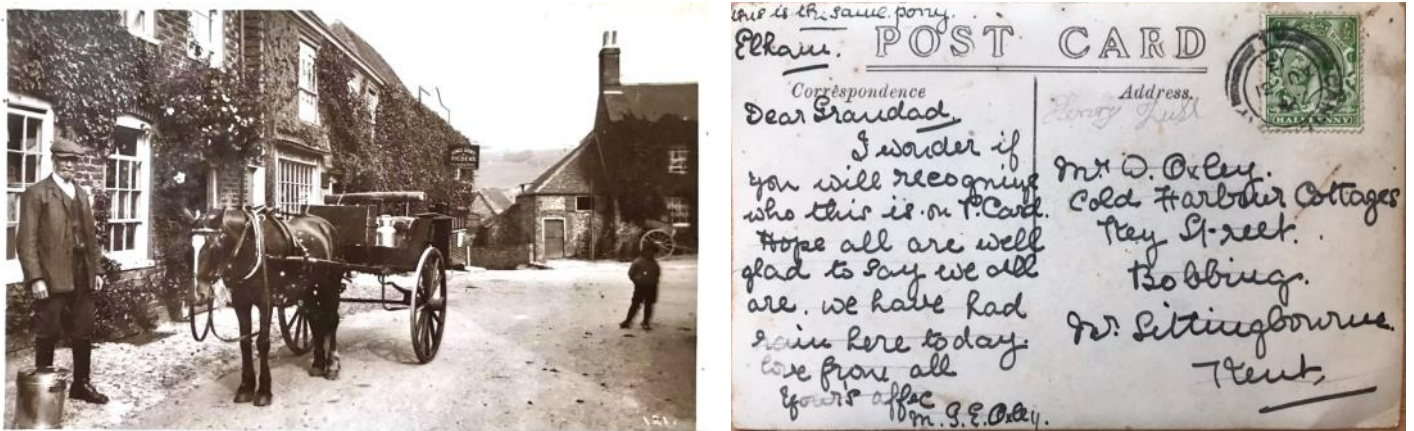 KING'S ARMS
121.
this is the same pony.
Elham.
POST CARD
Correspondence
Address.
Dear Grandad,
I wonder if
you will recognise
who this is on P. Card.
Hope all are well
glad to say we all
are. we have had
rain here today.
love from all
Yours affec
M. G. E. Oxley.
Henry
Mr W. Oxley.
Cold Harbour Cottages
Key Street.
Bobbing.
Nr. Sittingbourne.
Kent.
HALFPENNY